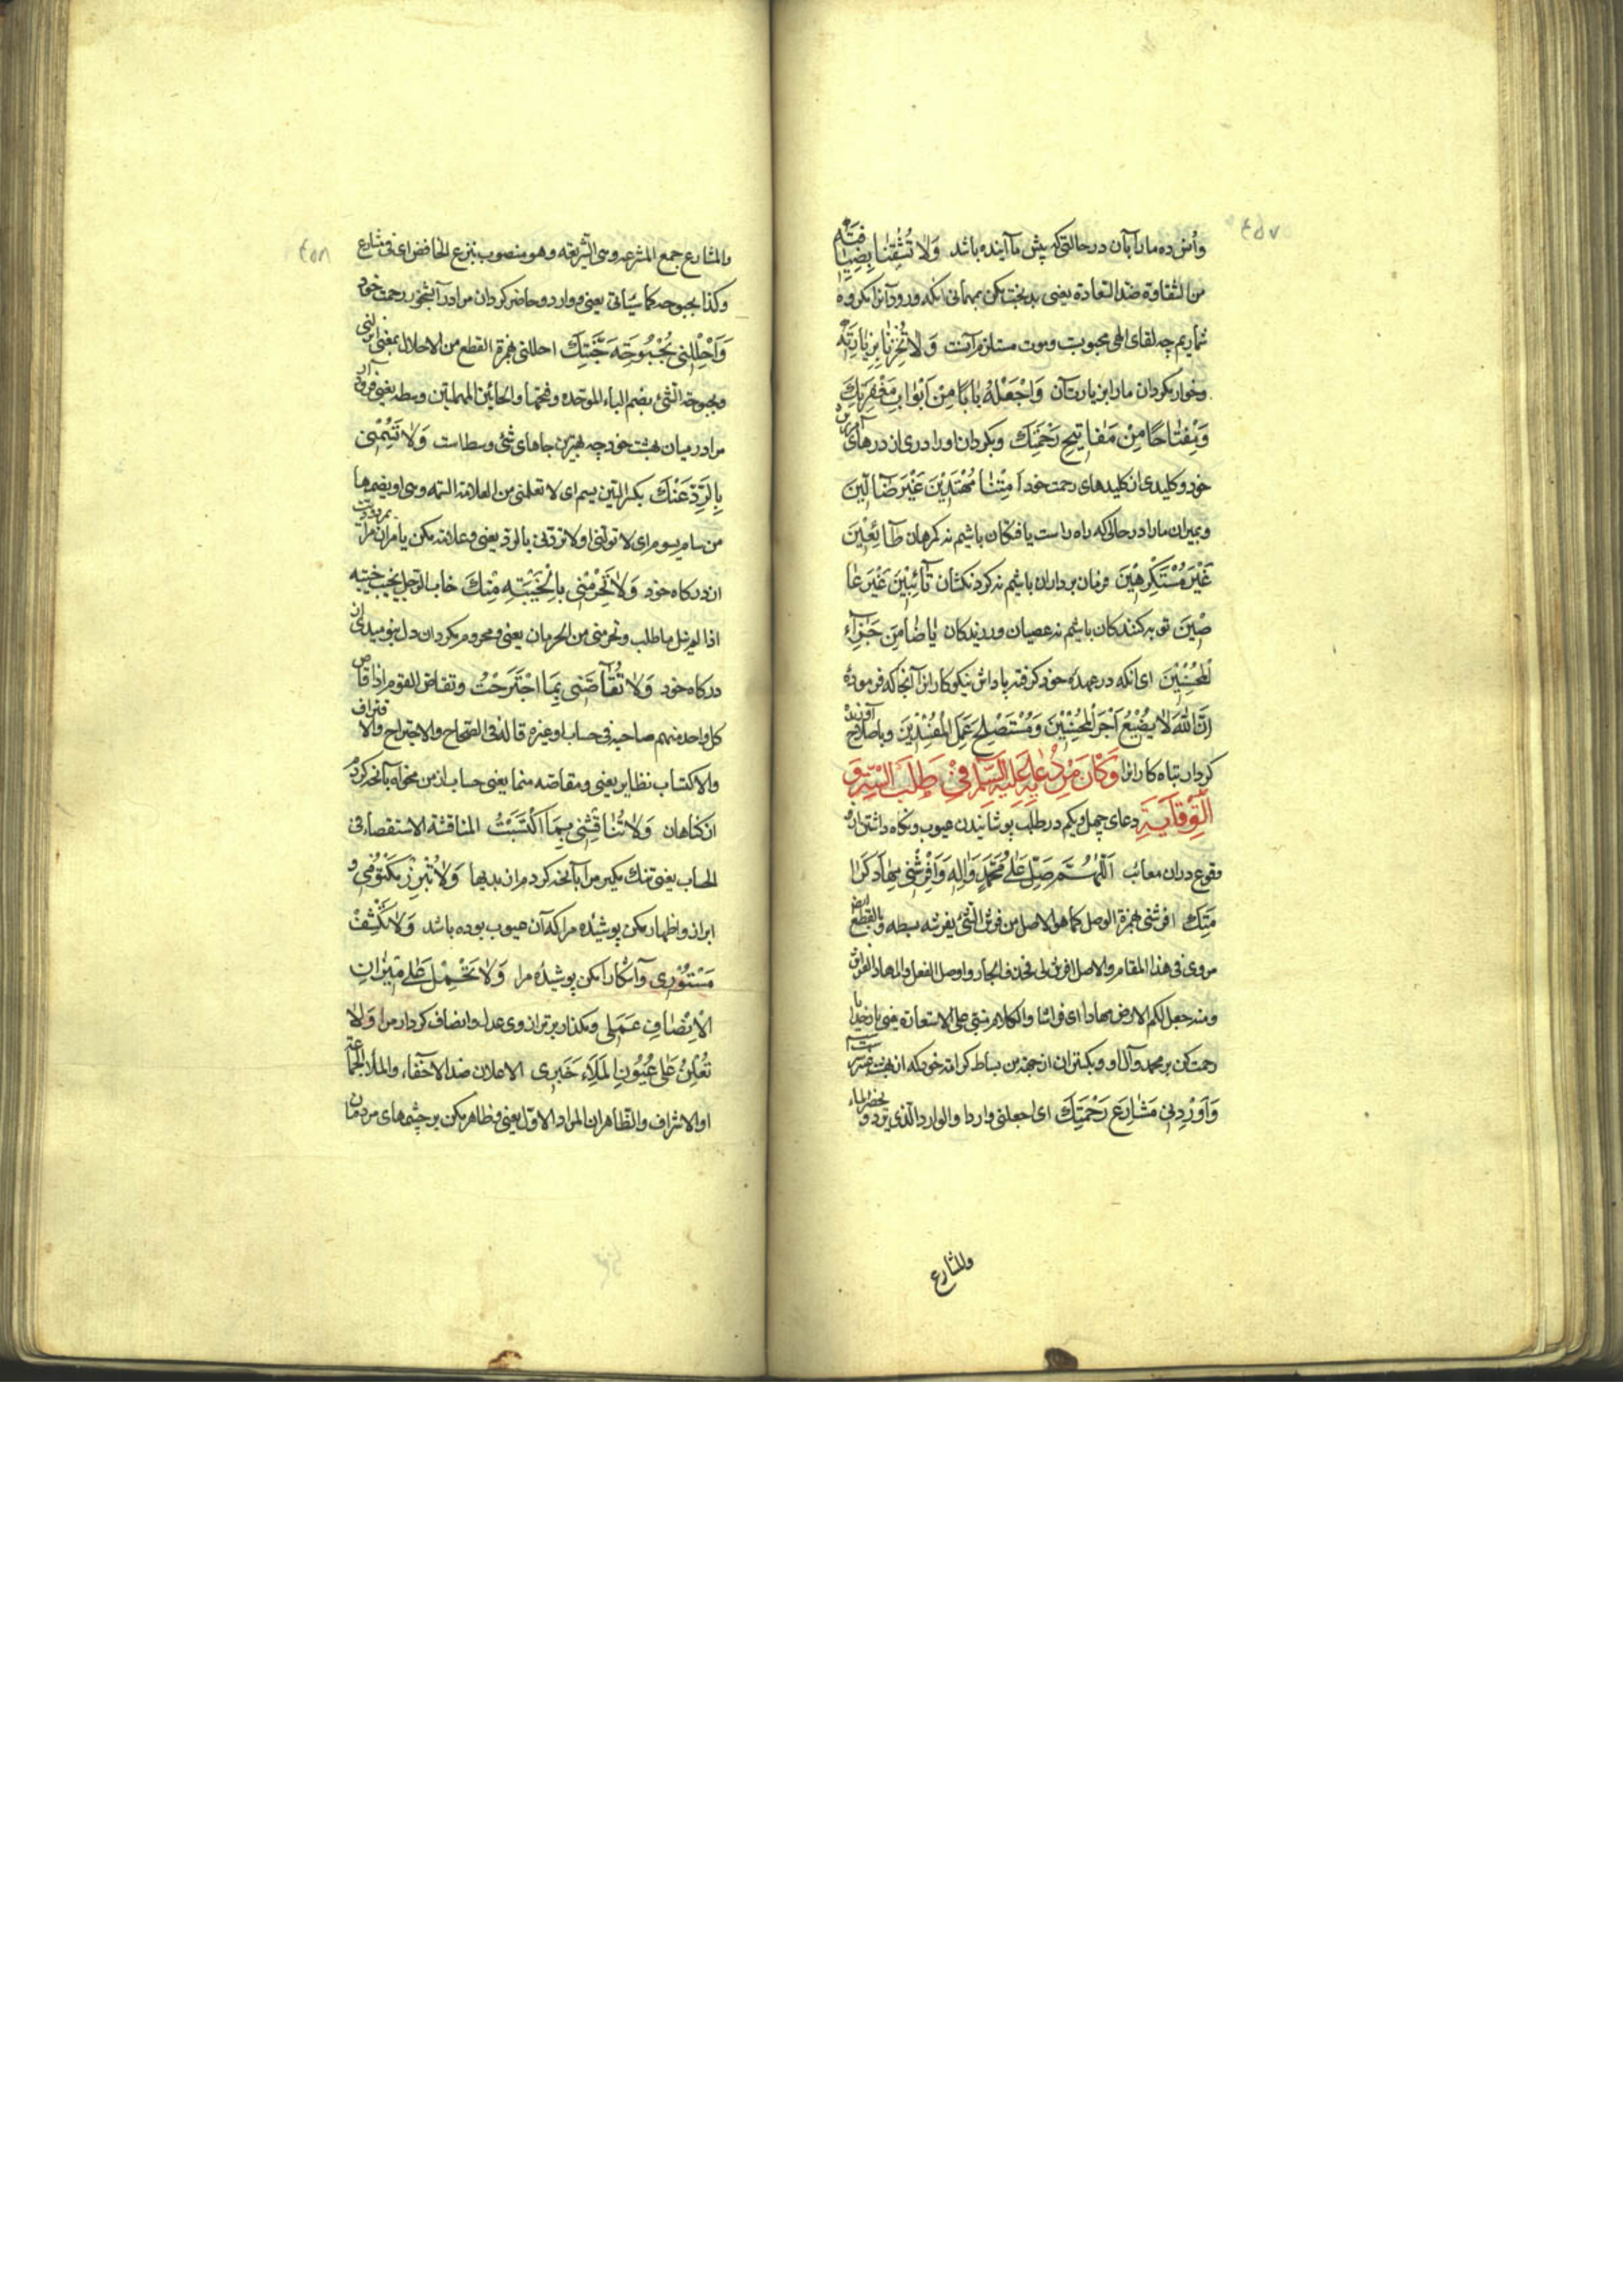 وانس ده ما را بآن در حالتی که پیش ما آینده باشد وَلا تُشْقِنا بِضِیافَتِهِ
من الشقاوة ضد السعادة یعنی بدبخت مکن بمهمانی آنکه ورود آنرا مکروه
شماریم چه لقای الهی محبوبست و موت مستلزم آنست وَلا تُخْزِنا بِزِیارَتِهِ
و خوار مگردان ما را بزیارت آن وَاجْعَلْهُ بابًا مِنْ اَبْوابِ مَغْفِرَتِكَ
وَمِفْتاحًا مِنْ مَفاتیحِ رَحْمَتِكَ و بگردان او را دری از درهای آمرزش
خود و کلیدی از کلیدهای رحمت خود اَمِتْنا مُهْتَدینَ غَیْرَ ضالّینَ
و بمیران ما را در حالی که راه راست یافتگان باشیم نه گمرهان طائِعینَ
غَیْرَ مُسْتَكْرِهینَ فرمان برداران باشیم نه گردنکشان تائِبینَ غَیْرَ عا
صینَ توبه کنندگان باشیم نه عصیان ورزندگان یا ضامِنَ جَزاءِ
الْمُحْسِنینَ ای آنکه در عهدهٔ خود گرفته پاداش نیکوکاران آنجا که فرموده
اِنَّ اللّٰهَ لا یُضیعُ اَجْرَ الْمُحْسِنینَ وَمُسْتَصْلِحَ عَمَلِ الْمُفْسِدینَ و باصلاح آورنده
کردار تباه کاران وَكانَ مِنْ دُعائِهِ عَلَیْهِ السَّلامُ فی طَلَبِ السِّتْرِ وَ
الْوِقایَةِ دعای چهل و یکم در طلب پوشانیدن عیوب و نگاه داشتن از
وقوع در آن معائب اَللّٰهُمَّ صَلِّ عَلی مُحَمَّدٍ وَالِهِ وَاَفْرِشْنی مِهادَ كَرا
مَتِكَ افرشنی بهمزة الوصل كما هو الاصل من فرش الشئ یفرشه بسطه و بالقطع ایض
مروی فی هذا المقام والاصل افرش لی فحذف الجار و اوصل الفعل والمهاد الفراش
ومنه جعل لكم الارض مهادا ای فراشا والكلام مبنی علی الاستعارة یعنی بار خدایا
رحمت کن بر محمد و آل او و بگستران از جهة من بساط کرامت خود که از بهشت عنبر سرشتست
وَاَوْرِدْنی مَشارِعَ رَحْمَتِكَ ای اجعلنی واردا والوارد الذی یرد و یحضر الماء
والمشارع
والمشارع جمع المشرعة وهی الشریعة وهو منصوب بنزع الخافض ای فی مشارع
وكذا بحبوحة كما سیاتی یعنی و وارد و حاضر گردان مرا در آبشخور رحمت خود
وَاَحْلِلْنی بُحْبُوحَةَ جَنَّتِكَ احللنی بهمزة القطع من الاحلال بمعنی انزلنی
وبحبوحة الشئ بضم الباء الموحده وفتحها والحائین المهملتین وسطه یعنی فرود آر
مرا در میان بهشت خود چه بهترین جاهای شئ وسط است وَلا تَسُمْنی
بِالرَّدِّ عَنْكَ بکسر السین یسم ای لا تعلمنی من العلامة السمه وهی او بضمها
من سام یسوم ای لا تولنی او لا تردنی بالرد یعنی و علامت مکن یا مران مرا بمردودیت
از درگاه خود وَلا تَحْرِمْنی بِالْخَیْبَةِ مِنْكَ خاب الرجل یخیب خیبه
اذا لم ینل ما طلب وتحرمنی من الحرمان یعنی و محروم مگردان دل بنومیدی از
درگاه خود وَلا تُقاصَّنی بِمَا اجْتَرَحْتُ وتقاص القوم اذا قاص
كل واحد منهم صاحبه فی حساب او غیره قاله فی الصحاح والاجتراح والاقتراف
والاکتساب نظایر یعنی و مقاصه منما یعنی حساب از من مخواه بآنچه کردم
از گناهان وَلا تُناقِشْنی بِمَا اكْتَسَبْتُ المناقشة الاستقصاء فی
الحساب یعنی تنک مگیر مرا بآنچه کردم از بدیها وَلا تُبْرِزْ مَكْتُومی و
ابراز و اظهار مکن پوشیده مرا که آن عیوب بوده باشد وَلا تَكْشِفْ
مَسْتُوری و آشکارا مکن پوشیده مرا وَلا تَحْمِلْ عَلی میزانِ
الْاِنْصافِ عَمَلی و مگذار بر ترازوی عدل و انصاف کردار مرا وَلا
تُعْلِنْ عَلی عُیُونِ الْمَلَاءِ خَبَری الاعلان ضد الاخفاء والملأ الجماعة
او الاشراف والظاهر ان المراد الاول یعنی و ظاهر مکن بر چشمهای مردمان